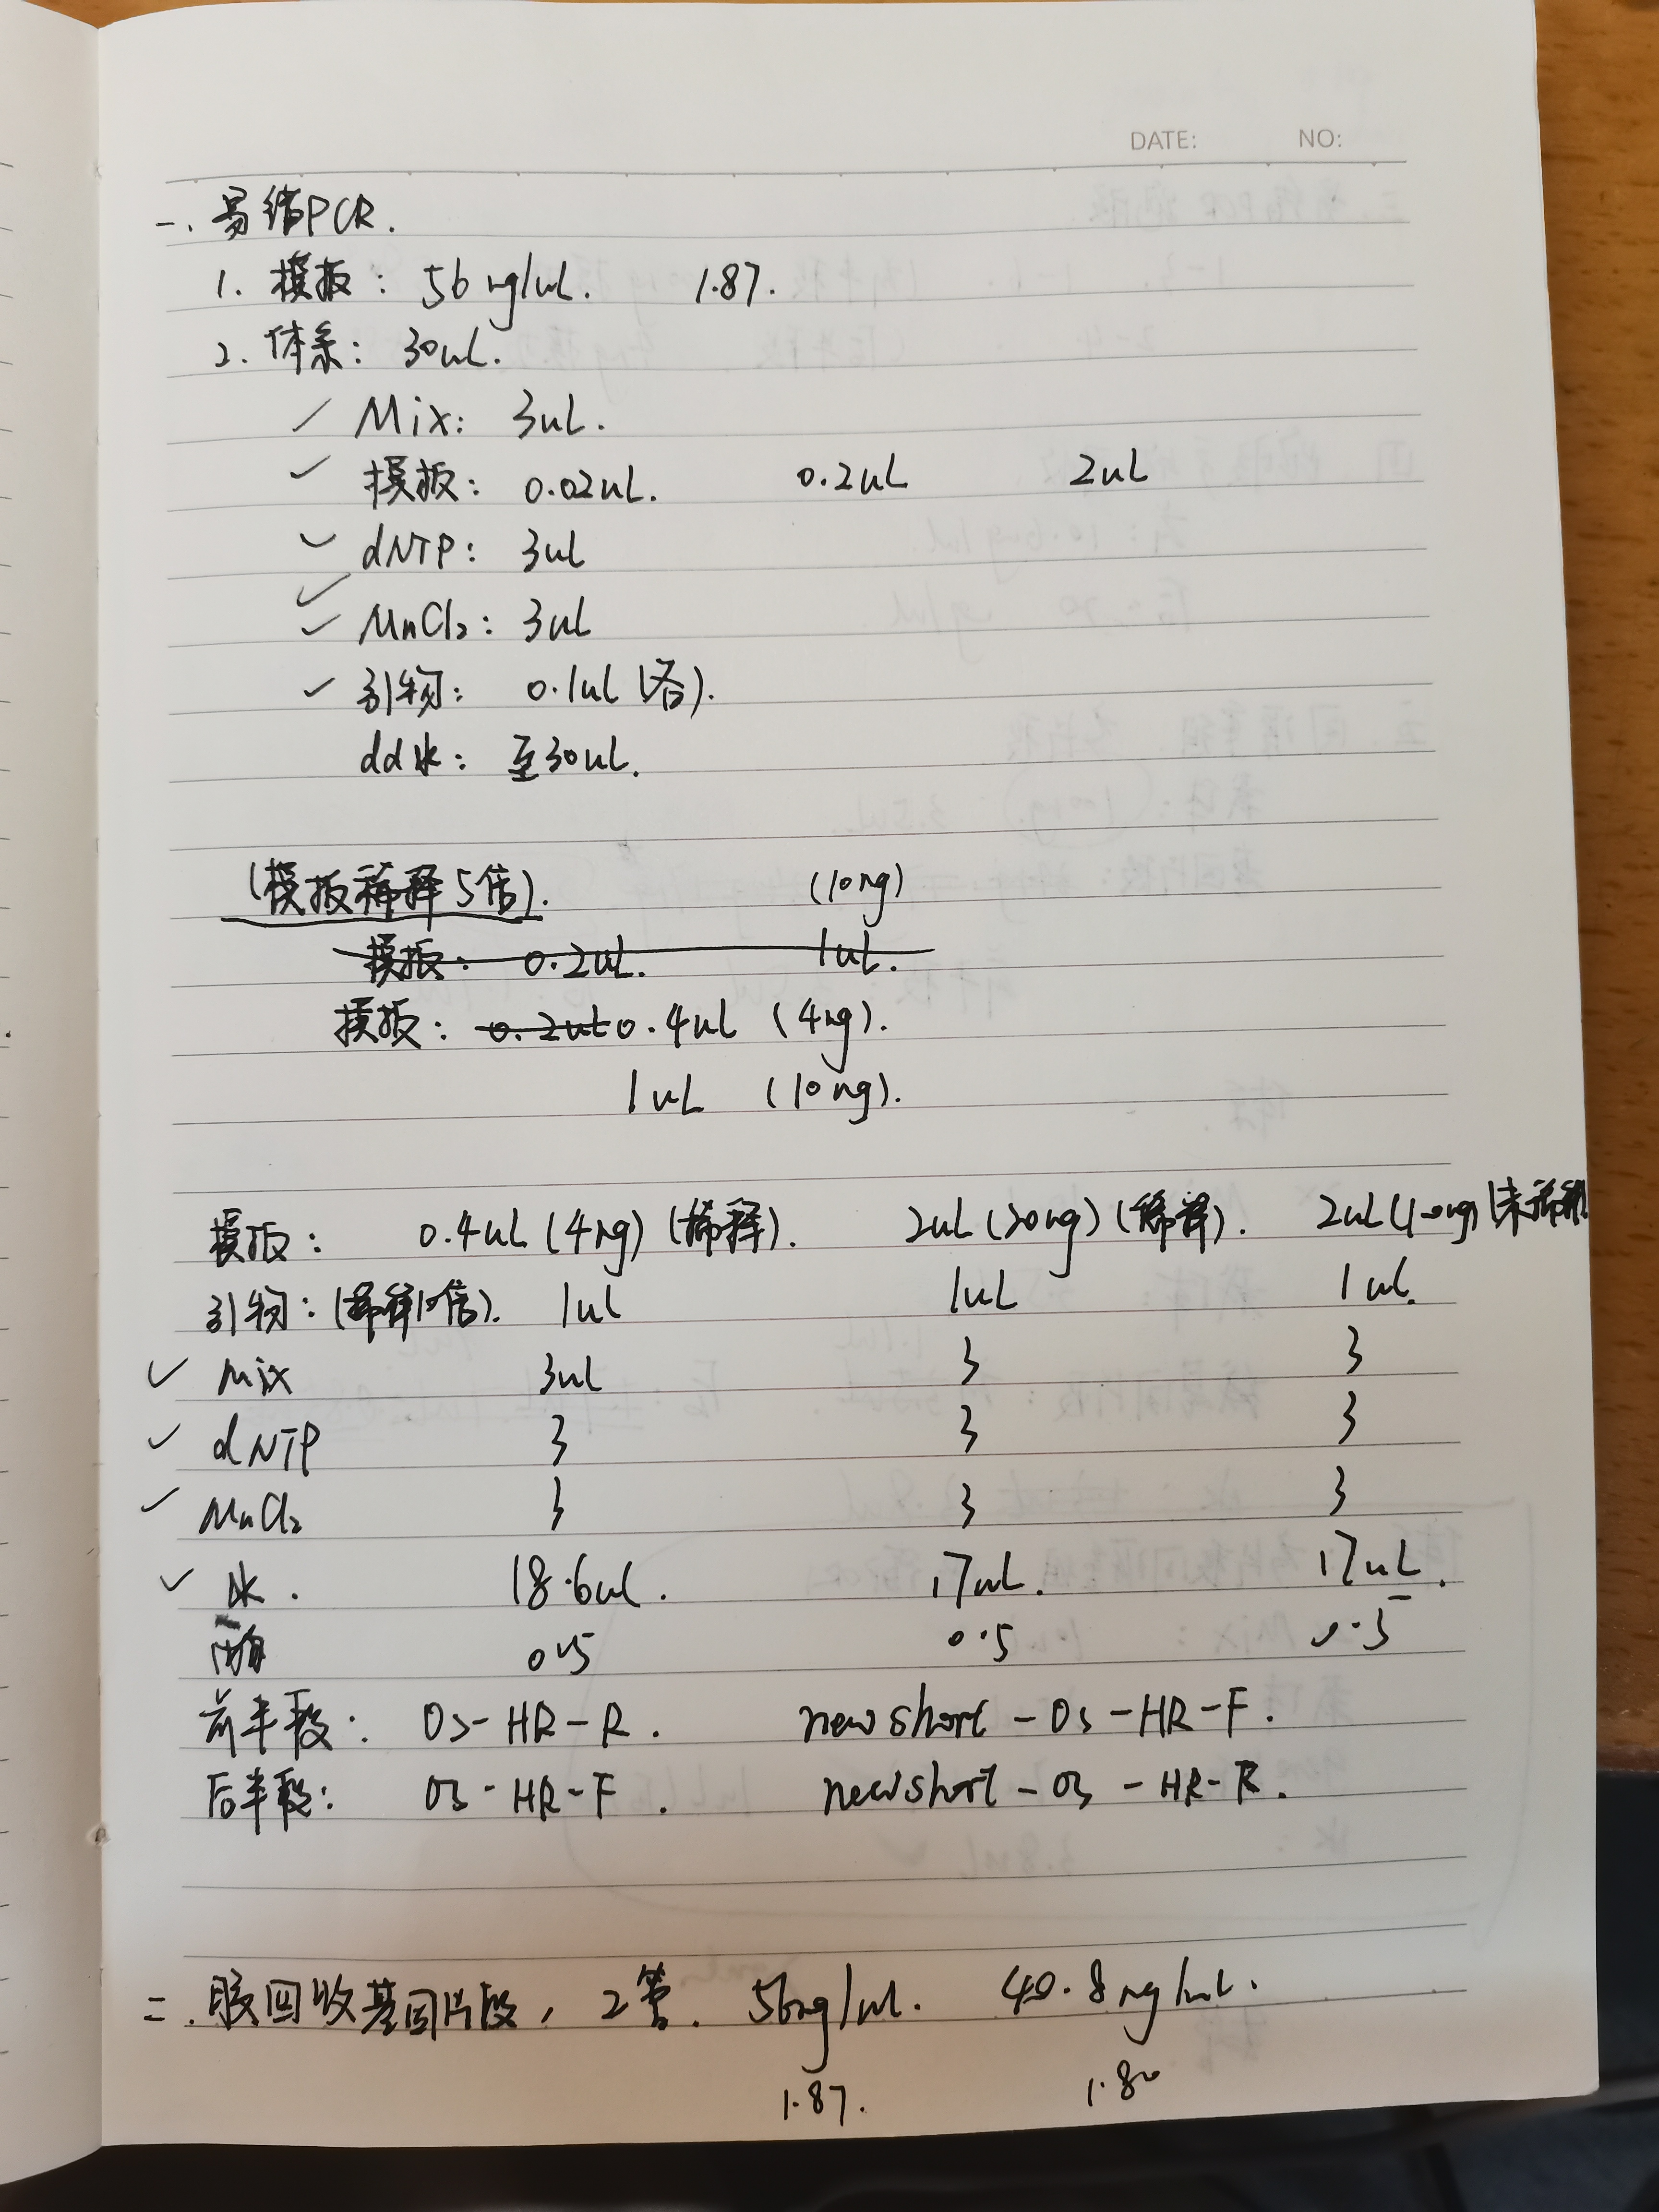 DATE: NO:
一. 易错PCR.
1. 模板: 56 ng/uL. 1.87.
2. 体系: 30uL.
Mix: 3uL.
模板: 0.02uL. 0.2uL 2uL
dNTP: 3uL
MnCl₂: 3uL
引物: 0.1uL (各).
dd水: 至30uL.
(模板稀释5倍). (10ng)
模板: 0.2uL. 1uL.
模板: 0.2uL 0.4uL (4ng).
1uL (10ng).
模板: 0.4uL (4ng) (稀释). 2uL (20ng) (稀释). 2uL (100ng) (未稀释
引物: (稀释10倍). 1uL 1uL 1uL.
Mix 3uL 3 3
dNTP 3 3 3
MnCl₂ 3 3 3
水. 18.6uL. 17uL. 17uL.
酶 0.5 0.5 0.5
前半段: Os-HR-R. new short-Os-HR-F.
后半段: Os-HR-F. new short-Os-HR-R.
二. 胶回收基因片段, 2管. 56ng/uL. 40.8ng/uL.
1.87. 1.80